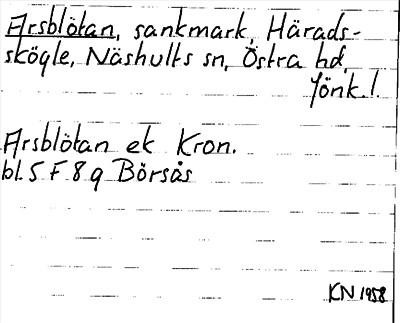 Arsblötan, sankmark, Härads-
skögle, Näshults sn, Östra hd,
Jönk. l.
Arsblötan ek Kron.
bl. 5 F 8 g Börsås
KN 1958